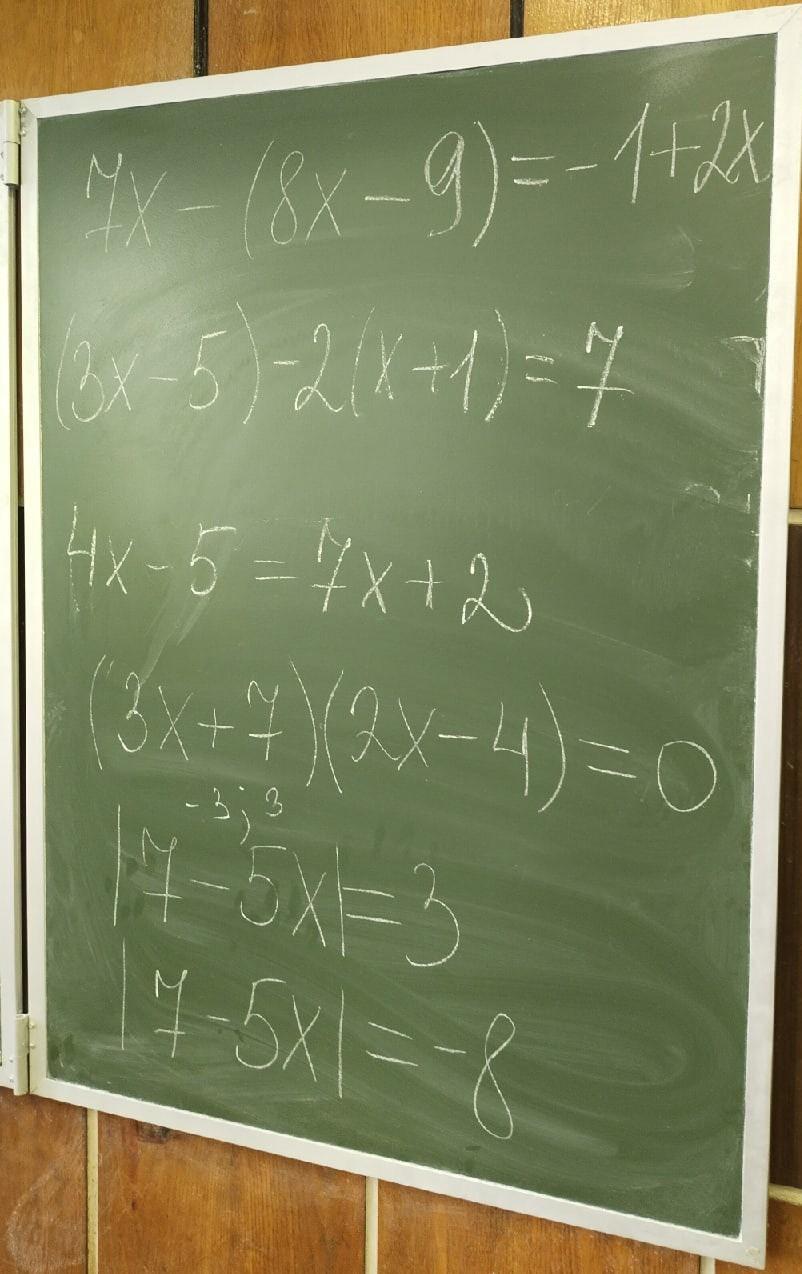 7x - (8x - 9) = - 1 + 2x
(3x - 5) - 2(x + 1) = 7
4x - 5 = 7x + 2
(3x + 7)(2x - 4) = 0
-3; 3
|7 - 5x| = 3
|7 - 5x| = -8